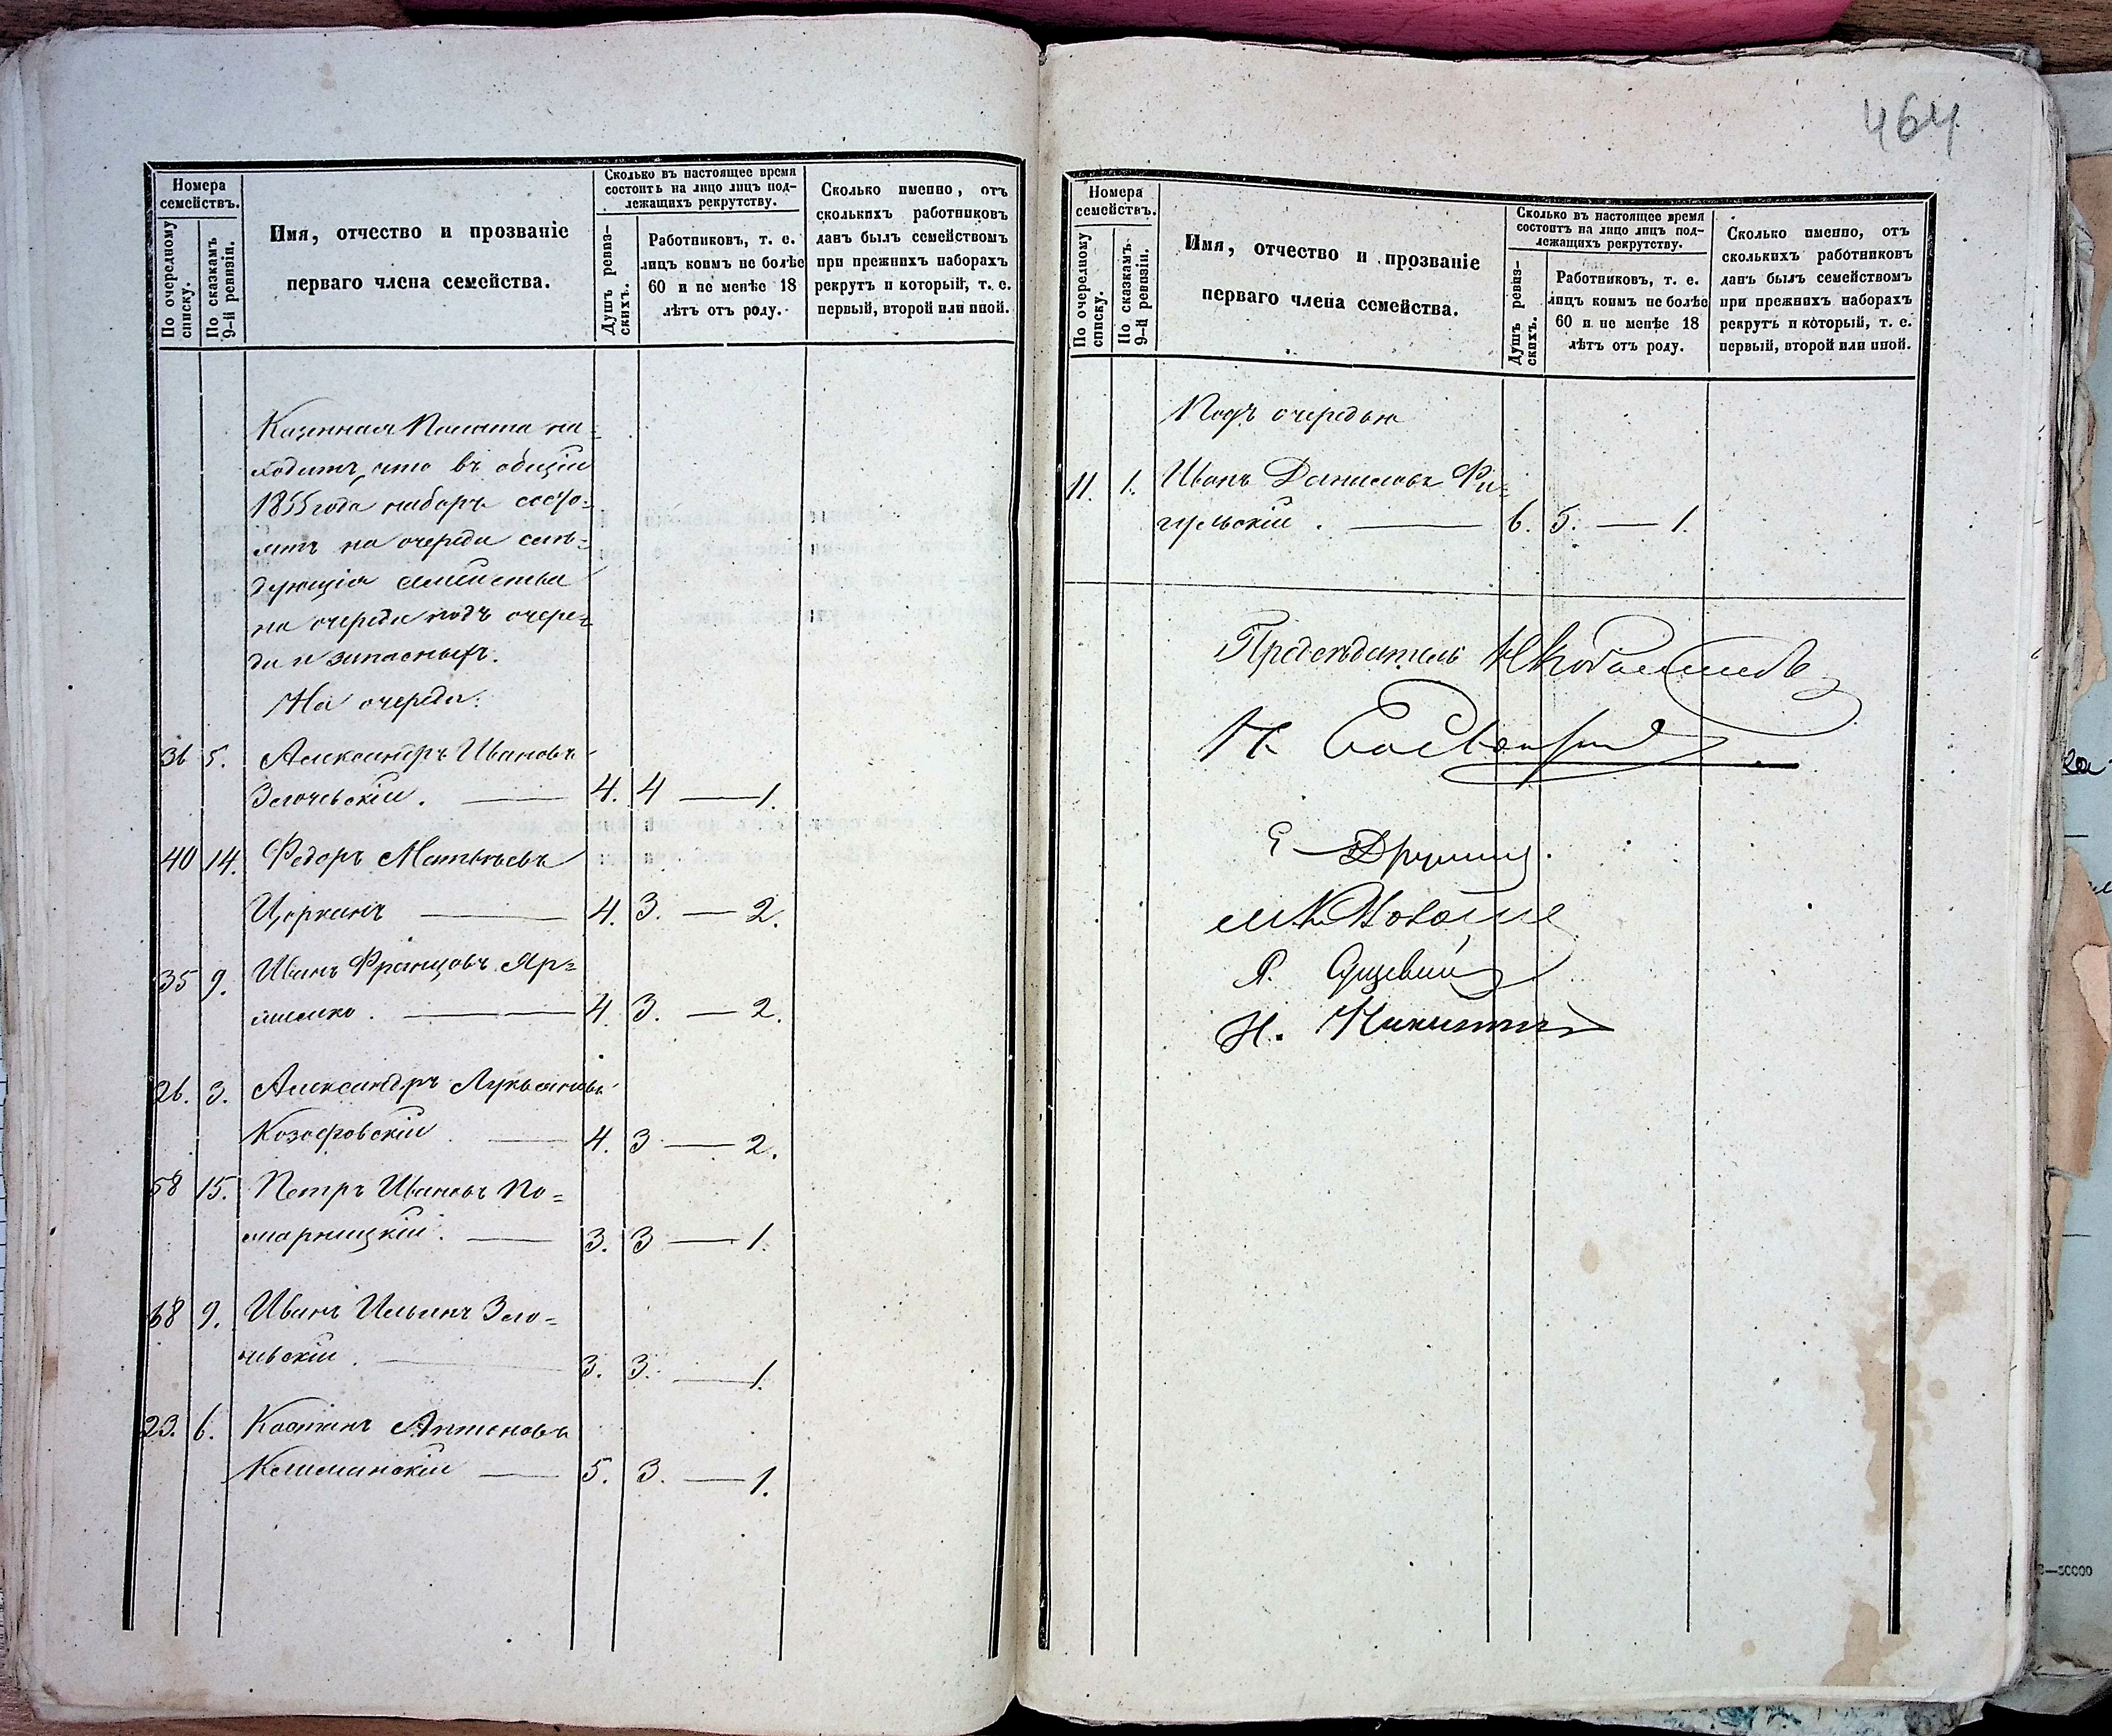 464
Номера
семействъ.
По очередному
списку.
По сказкамъ
9-й ревизіи.
Имя, отчество и прозваніе
перваго члена семейства.
Сколько въ настоящее время
состоитъ на лицо лицъ под-
лежащихъ рекрутству.
Душъ ревиз-
скихъ.
Работниковъ, т. е.
лицъ коимъ не болѣе
60 и не менѣе 18
лѣтъ отъ роду.
Сколько именно, отъ
сколькихъ работниковъ
данъ былъ семействомъ
при прежнихъ наборахъ
рекрутъ и который, т. е.
первый, второй или иной.
Казенная Палата на=
ходитъ, что въ общій
1855 года наборъ состо=
ятъ на очереди слѣ=
дующія семейства
на очереди подъ очере=
ди и запасныхъ.
На очереди.
36 5. Александръ Ивановъ
Злочевскій. — 4. 4 — 1.
40 14. Федоръ Матвѣевъ
Цорканъ — 4. 3. — 2.
35 9. Иванъ Францовъ Яр=
— 4. 3. — 2.
26. 3. Александръ Лукьяновъ
Козловскій — 4. 3 — 2.
58 15. Петръ Ивановъ По=
марницкій. — 3. 3 — 1.
68 9. Иванъ Ильинъ Зло=
чевскій. — 3. 3. — 1.
23. 6. Антоновъ
— 5. 3. — 1.
Номера
семействъ.
По очередному
списку.
По сказкамъ
9-й ревизіи.
Имя, отчество и прозваніе
перваго члена семейства.
Сколько въ настоящее время
состоитъ на лицо лицъ под-
лежащихъ рекрутству.
Душъ ревиз-
скихъ.
Работниковъ, т. е.
лицъ коимъ не болѣе
60 и не менѣе 18
лѣтъ отъ роду.
Сколько именно, отъ
сколькихъ работниковъ
данъ былъ семействомъ
при прежнихъ наборахъ
рекрутъ и который, т. е.
первый, второй или иной.
Подъ очередью
11. 1. Иванъ Даниловъ Фи=
гурскій. — 6. 5. — 1.
Предсѣдатель
Н. Никитинъ